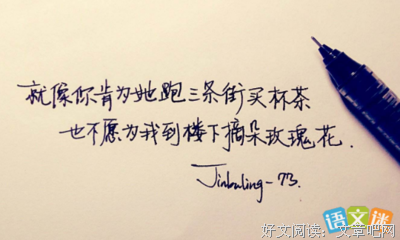 就像你肯为她跑三条街买杯茶
也不愿为我到楼下摘朵玫瑰花.
语文迷
好文阅读：文章吧网